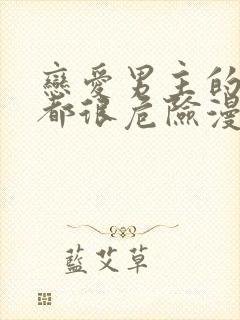 戀愛男主的
都很危險漫
藍艾草